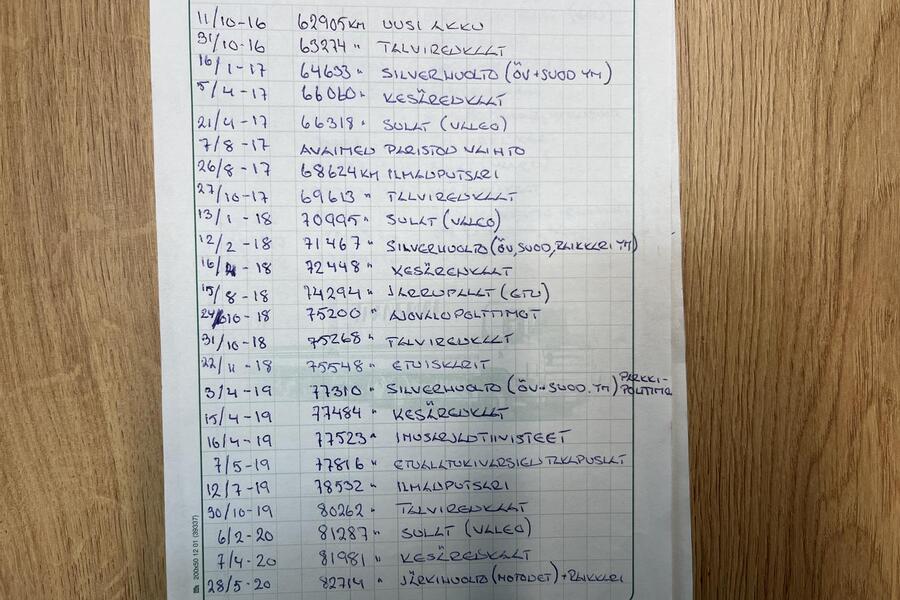 11/10-16 62905KM UUSI AKKU
31/10-16 63274 " TALVIRENKAAT
16/1-17 64693 " SILVERHUOLTO (ÖV+SUOD YM)
5/4-17 66060 " KESÄRENKAAT
21/4-17 66318 " SULAT (VALEO)
7/8-17 AVAIMEN PARISTON VAIHTO
26/8-17 68624KM ILMANPUTSARI
27/10-17 69613 " TALVIRENKAAT
13/1-18 70995 " SULAT (VALEO)
12/2-18 71467 " SILVERHUOLTO (ÖV, SUOD, RAIKKARI YM)
16/4-18 72448 " KESÄRENKAAT
15/8-18 74294 " JARRUPALAT (ETU)
24/10-18 75200 " AJOVALOPOLTTIMOT
31/10-18 75268 " TALVIRENKAAT
22/11-18 75548 " ETUISKARIT
3/4-19 77310 " SILVERHUOLTO (ÖV+SUOD. YM) PARKKI-POLTTIMO
15/4-19 77484 " KESÄRENKAAT
16/4-19 77523 " IMUSARJANTIIVISTEET
7/5-19 77816 " ETUALATUKIVARSIEN TAKAPUSLAT
12/7-19 78532 " ILMANPUTSARI
30/10-19 80262 " TALVIRENKAAT
6/2-20 81287 " SULAT (VALEO)
7/4-20 81981 " KESÄRENKAAT
28/5-20 82714 " JÄRKIHUOLTO (MOTONET) + RAIKKARI
200x50 12 01 (39337)